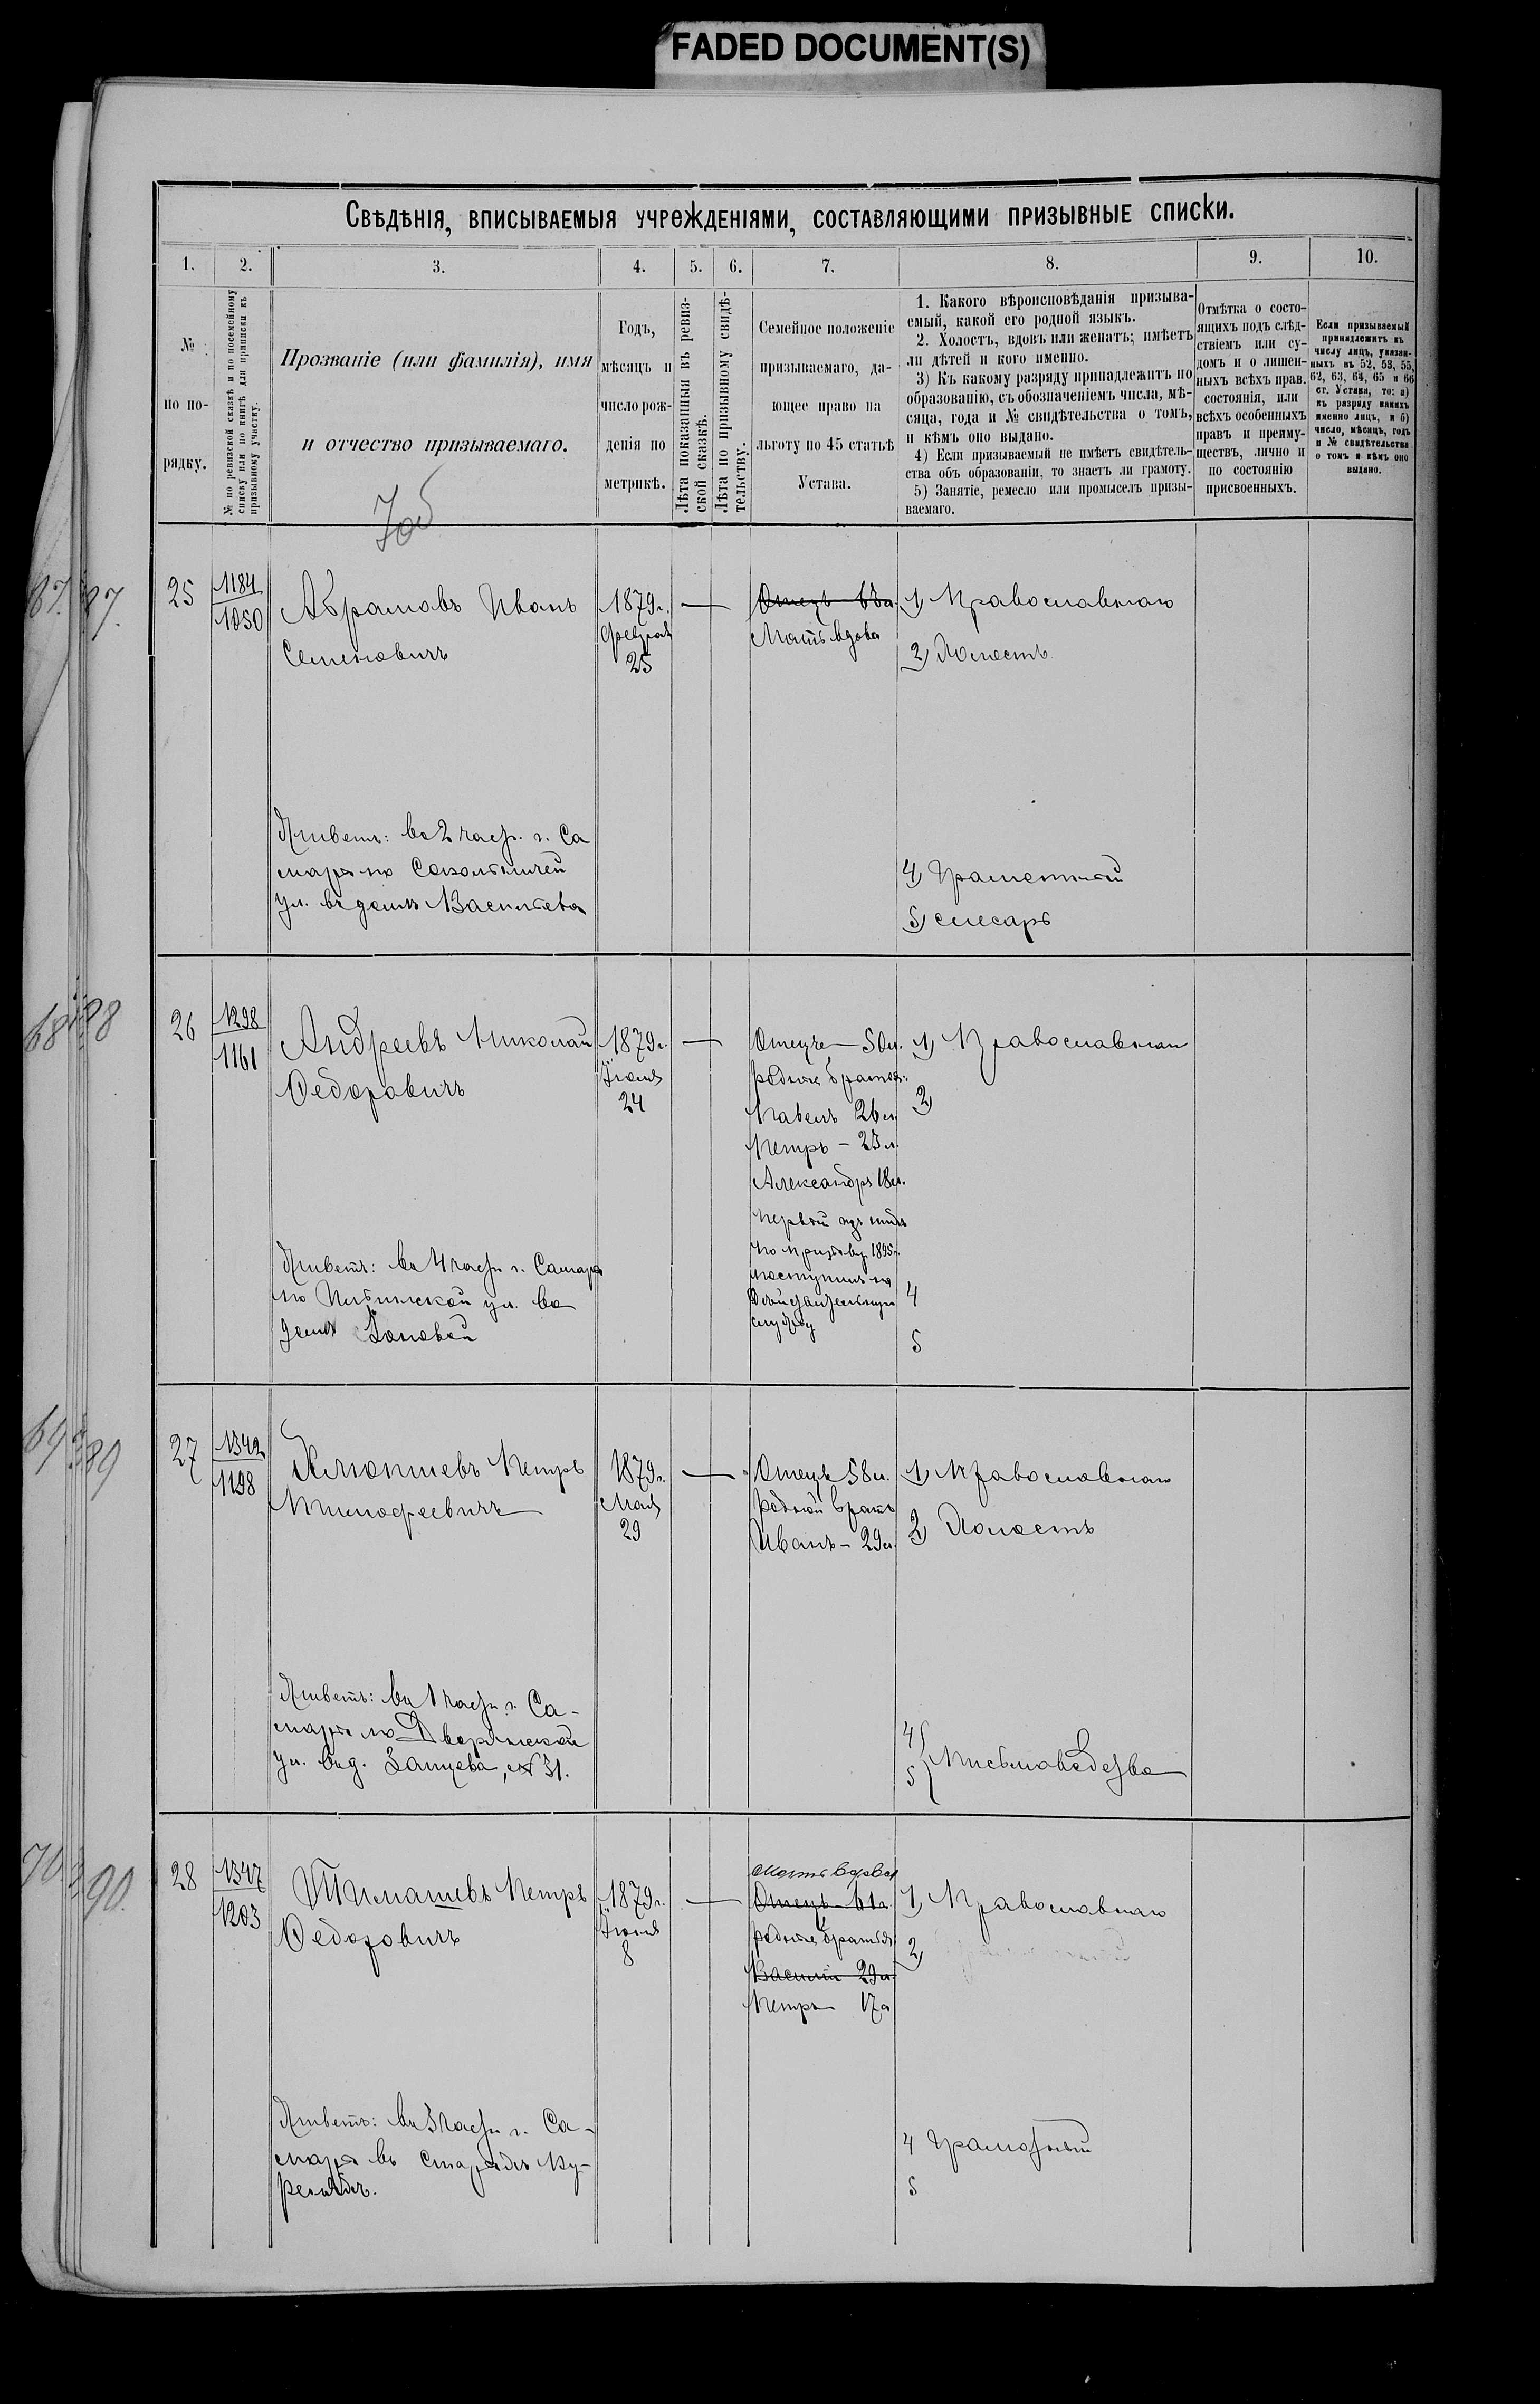 FADED DOCUMENT(S)
Свѣдѣнія, вписываемыя учрежденіями, составляющими призывные списки.
1.
2.
3.
4.
5.
6.
7.
8.
9.
10.
№
по по-
рядку.
№ по ревизской сказкѣ и по посемейному
списку или по книгѣ для приписки къ
призывному участку.
Прозваніе (или фамилія), имя
и отчество призываемаго.
Годъ,
мѣсяцъ и
число рож-
денія по
метрикѣ.
Лѣта показанныя въ ревиз-
ской сказкѣ.
Лѣта по призывному свидѣ-
тельству.
Семейное положеніе
призываемаго, да-
ющее право на
льготу по 45 статьѣ
Устава.
1. Какого вѣроисповѣданія призыва-
емый, какой его родной языкъ.
2. Холостъ, вдовъ или женатъ; имѣетъ
ли дѣтей и кого именно.
3) Къ какому разряду принадлежитъ по
образованію, съ обозначеніемъ числа, мѣ-
сяца, года и № свидѣтельства о томъ,
и кѣмъ оно выдано.
4) Если призываемый не имѣетъ свидѣтель-
ства объ образованіи, то знаетъ ли грамоту.
5) Занятіе, ремесло или промыселъ призы-
ваемаго.
Отмѣтка о состо-
ящихъ подъ слѣд-
ствіемъ или су-
домъ и о лишен-
ныхъ всѣхъ прав.
состоянія, или
всѣхъ особенныхъ
правъ и преиму-
ществъ, лично и
по состоянію
присвоенныхъ.
Если призываемый
принадлежитъ къ
числу лицъ, указан-
ныхъ въ 52, 53, 55,
62, 63, 64, 65 и 66
ст. Устава, то: а)
къ разряду какихъ
именно лицъ, и б)
число, мѣсяцъ, годъ
и № свидѣтельства
о томъ и кѣмъ оно
выдано.
87.
25
1184
1050
Абрамовъ Иванъ
Семеновичъ
1879г.
Февраля
25
Отецъ 63л.
Мать вдова
1) Православнаго
2) Холостъ
Живетъ: во 2 части г. Са
марѣ по Сокольничей
ул. въ домѣ Васильева
4) Грамотный
5) слесарь
68
88
26
1298
1161
Андреевъ Николай
Федоровичъ
1879г.
Іюля
24
Отецъ — 50л.
родные братья:
Павелъ 26л.
Петръ – 23л.
Александръ 18л.
Первый изъ нихъ
по призыву 1895г.
поступилъ на
Дѣйствительную
службу
1) Православнаго
2)
Живетъ: въ 4 части г. Самары
по ул. въ
домѣ Поповой
4
5
69
89
27
1342
1198
Петръ
Тимофеевичъ
1879г.
Мая
29
Отецъ 58л.
родной братъ
Иванъ – 29л.
1) Православнаго
2) Холостъ
Живетъ: въ 1 части г. Са-
марѣ по Дворянской
ул. въ д. Зайцева, № 31.
4)
5
Письмоводство
70
90.
28
1347
1203
Тимашевъ Петръ
Федоровичъ
1879г.
Іюня
8
Мать вдова
Отецъ – 61г.
родные братья
Василій 29л.
Петръ 17л
1) Православнаго
2)
Живетъ: въ 3 части г. Са-
марѣ въ
4 Грамотный
5